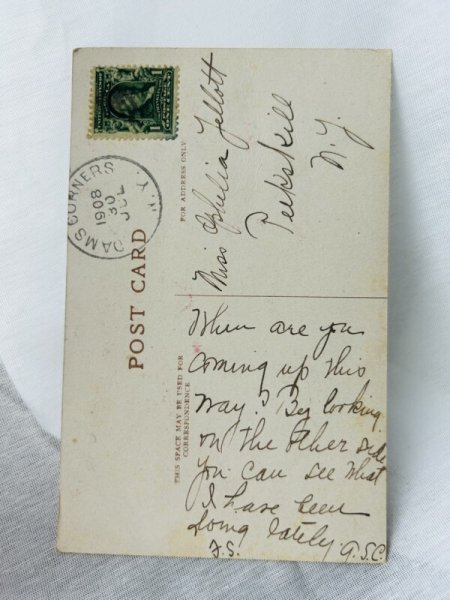 ADAMS CORNERS
N.Y.
JUL
30
1908
POST CARD
FOR ADDRESS ONLY
Miss Ophelia Tellott
Peekskill
N.Y.
THIS SPACE MAY BE USED FOR
CORRESPONDENCE
When are you
coming up this
way? By looking
on the other side
you can see what
I have been
doing lately.
G.S.C.